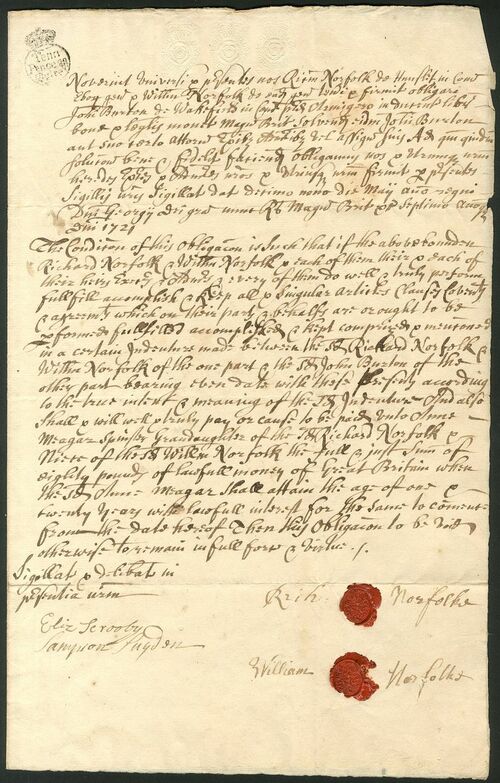 Noverint Universi p presentes nos Ricm Norfolk de Hunslet in Com
Ebor gen & Willm Norfolk de ead gen teneri & firmit obligari
Johi Burton de Wakefield in Com pred Armigero in
bone & legalis monet Magn Brit Solvend eidm Johi Burton
aut suo certo Attorn Execut Administ vel Assign suis Ad quam quidm
Solucon bene & fidelit faciend obligamus nos & utrumq nrm
heredes Exec & Admtores nros & utriusq nrm firmit p presentes
Sigillis nris Sigillat dat decimo nono die Maij anno regni
Dni Georgij dei gra nunc Rs Magn Brit &c Septimo Anoq
Dni 1721
The Condicon of this Obligacon is Such that if the above bounden
Richard Norfolk & Willm Norfolk & each of them their & each of
their heires Execrs & Admrs & every of them do well & truly perform
fullfill accomplish & keep all & Singular Articles Clauses Covents
& agreemts which on their part & behalfe are or ought to be
pformed fullfilled accomplished & kept comprized & mentoned
in a certain Indenture made between the sd Richard Norfolk &
Willm Norfolk of the one part & the sd John Burton of the
other part bearing even date with these according
to the true intent & meaning of the sd Indenture And also
Shall & will well & truly pay or cause to be paid unto Anne
Meagar Spinster Grandaughter of the sd Richard Norfolk &
Niece of the sd Willm Norfolk the full & just Sum of
eighty pounds of lawfull money of Great Britain when
the sd Anne Meagar Shall attain the age of one &
twenty Years with lawfull interest for the same to comence
from the date hereof Then this Obligacon to be void
otherwise to remain in full force & virtue
Sigillat & delibat in
psentia nrm
Rich: Norfolke
Eliz Scrooby
Sampson Hugden
William Norfolke